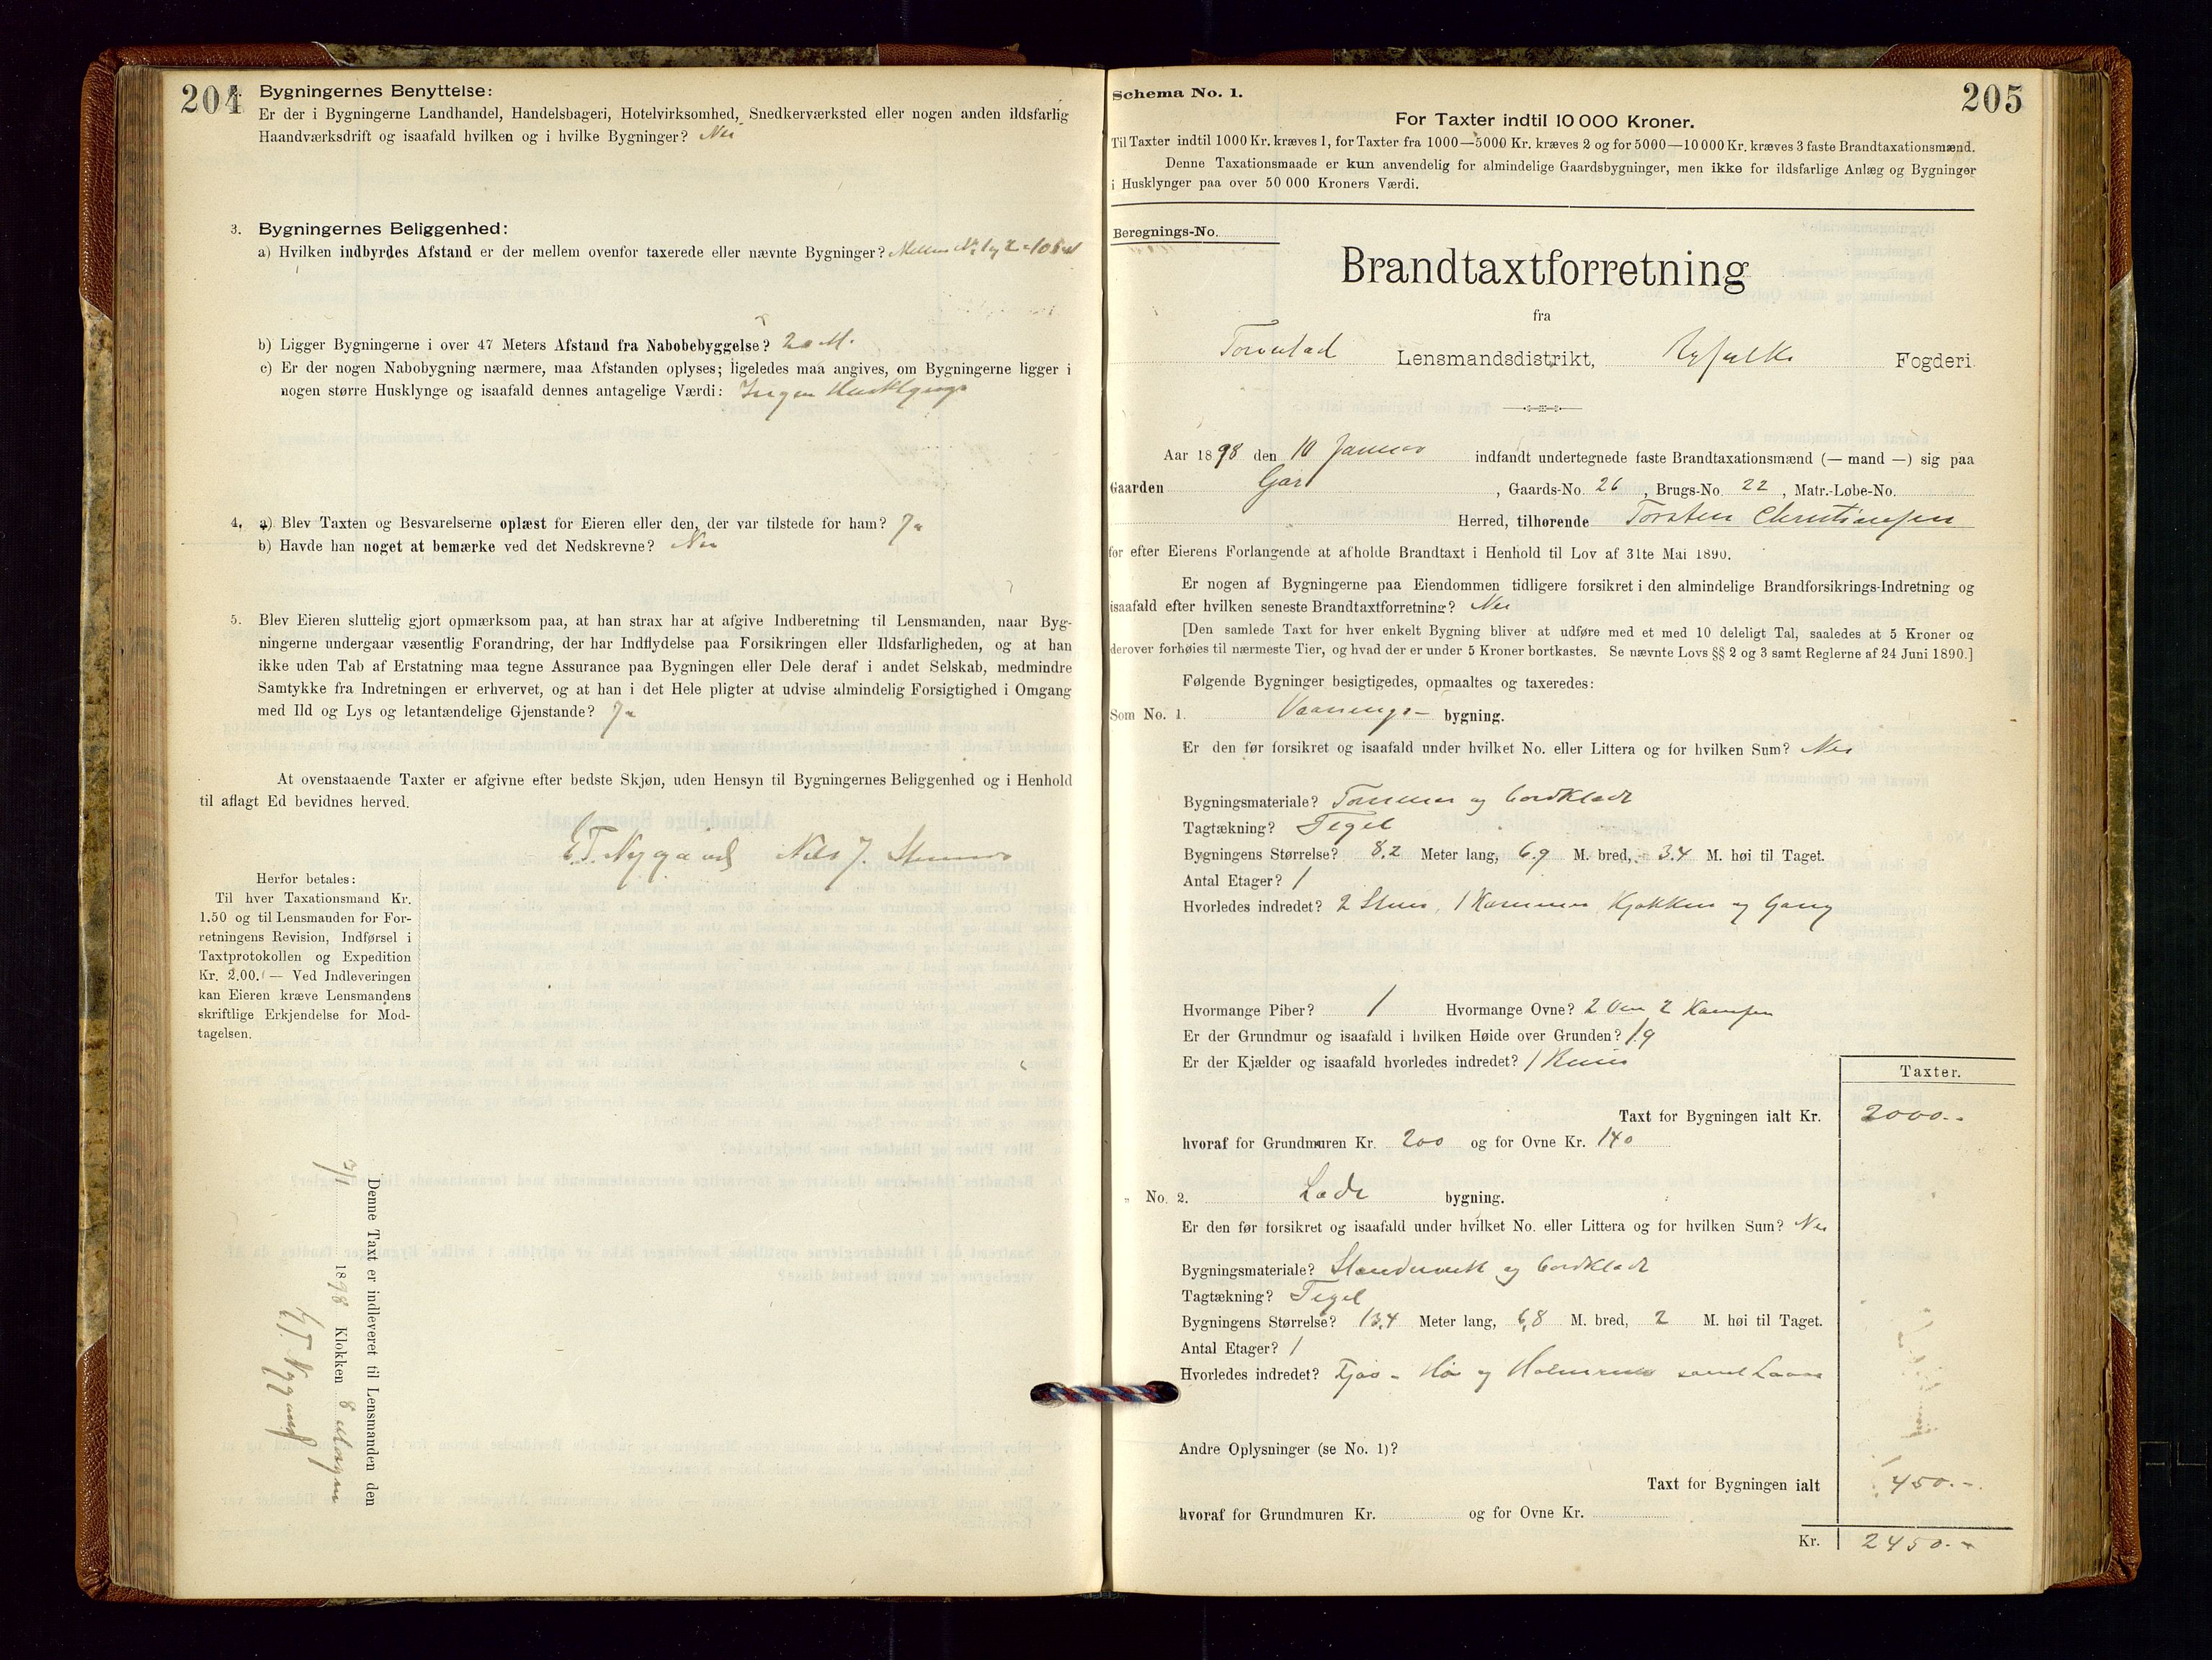 204
Bygningernes Benyttelse:
Er der i Bygningerne Landhandel, Handelsbageri, Hotelvirksomhed, Snedkerværksted eller nogen anden ildsfarlig
Haandværksdrift og isaafald hvilken og i hvilke Bygninger? Nei
3. Bygningernes Beliggenhed:
a) Hvilken indbyrdes Afstand er der mellem ovenfor taxerede eller nævnte Bygninger? Mellem No 1 og 2
b) Ligger Bygningerne i over 47 Meters Afstand fra Nabobebyggelse? 20 M.
c) Er der nogen Nabobygning nærmere, maa Afstanden oplyses; ligeledes maa angives, om Bygningerne ligger i
nogen større Husklynge og isaafald dennes antagelige Værdi: Ingen Husklynge
4. a) Blev Taxten og Besvarelserne oplæst for Eieren eller den, der var tilstede for ham? Ja
b) Havde han noget at bemærke ved det Nedskrevne? Nei
5. Blev Eieren sluttelig gjort opmærksom paa, at han strax har at afgive Indberetning til Lensmanden, naar Byg-
ningerne undergaar væsentlig Forandring, der har Indflydelse paa Forsikringen eller Ildsfarligheden, og at han
ikke uden Tab af Erstatning maa tegne Assurance paa Bygningen eller Dele deraf i andet Selskab, medmindre
Samtykke fra Indretningen er erhvervet, og at han i det Hele pligter at udvise almindelig Forsigtighed i Omgang
med Ild og Lys og letantændelige Gjenstande? Ja
At ovenstaaende Taxter er afgivne efter bedste Skjøn, uden Hensyn til Bygningernes Beliggenhed og i Henhold
til aflagt Ed bevidnes herved.
E.T. Nygaard Nils J.
Herfor betales:
Til hver Taxationsmand Kr.
1.50 og til Lensmanden for For-
retningens Revision, Indførsel i
Taxtprotokollen og Expedition
Kr. 2.00. — Ved Indleveringen
kan Eieren kræve Lensmandens
skriftlige Erkjendelse for Mod-
tagelsen.
Denne Taxt er indleveret til Lensmanden den
1898 Klokken 8
E.T. Nygaard
205
Schema No. 1.
For Taxter indtil 10 000 Kroner.
Til Taxter indtil 1000 Kr. kræves 1, for Taxter fra 1000—5000 Kr. kræves 2 og for 5000—10 000 Kr. kræves 3 faste Brandtaxationsmænd.
Denne Taxationsmaade er kun anvendelig for almindelige Gaardsbygninger, men ikke for ildsfarlige Anlæg og Bygninger
i Husklynger paa over 50 000 Kroners Værdi.
Beregnings-No.
Brandtaxtforretning
fra
Torvestad Lensmandsdistrikt, Ryfylke Fogderi.
Aar 1898 den 10 Januar indfandt undertegnede faste Brandtaxationsmænd (— mand —) sig paa
Gaarden Gar , Gaards-No. 26 , Brugs-No. 22 , Matr.-Løbe-No.
Herred, tilhørende Torsten Christiansen
for efter Eierens Forlangende at afholde Brandtaxt i Henhold til Lov af 31te Mai 1890.
Er nogen af Bygningerne paa Eiendommen tidligere forsikret i den almindelige Brandforsikrings-Indretning og
isaafald efter hvilken seneste Brandtaxtforretning? Nei
[Den samlede Taxt for hver enkelt Bygning bliver at udføre med et med 10 deleligt Tal, saaledes at 5 Kroner og
derover forhøies til nærmeste Tier, og hvad der er under 5 Kroner bortkastes. Se nævnte Lovs §§ 2 og 3 samt Reglerne af 24 Juni 1890.]
Følgende Bygninger besigtigedes, opmaaltes og taxeredes:
Som No. 1. Vaanings- bygning.
Er den før forsikret og isaafald under hvilket No. eller Littera og for hvilken Sum? Nei
Bygningsmateriale? Tømmer og bordklædt
Tagtækning? Tegel
Bygningens Størrelse? 8.2 Meter lang, 6.9 M. bred, 3.4 M. høi til Taget.
Antal Etager? 1
Hvorledes indredet? 2 Stuer, 1 Kammer, Kjøkken og Gang
Hvormange Piber? 1 Hvormange Ovne? 2 Ovne 2
Er der Grundmur og isaafald i hvilken Høide over Grunden? 1.9
Er der Kjælder og isaafald hvorledes indredet? 1 Rum
Taxter.
Taxt for Bygningen ialt Kr. 2000.-
hvoraf for Grundmuren Kr. 200 og for Ovne Kr. 140
„ No. 2. Lade bygning.
Er den før forsikret og isaafald under hvilket No. eller Littera og for hvilken Sum? Nei
Bygningsmateriale? Standerverk og bordklædt
Tagtækning? Tegel
Bygningens Størrelse? 13.4 Meter lang, 6.8 M. bred, 2 M. høi til Taget.
Antal Etager? 1
Hvorledes indredet? Fjøs - Hø og Halmrum samt Laave
Andre Oplysninger (se No. 1)?
Taxt for Bygningen ialt 450.-
hvoraf for Grundmuren Kr. og for Ovne Kr.
Kr. 2450.-